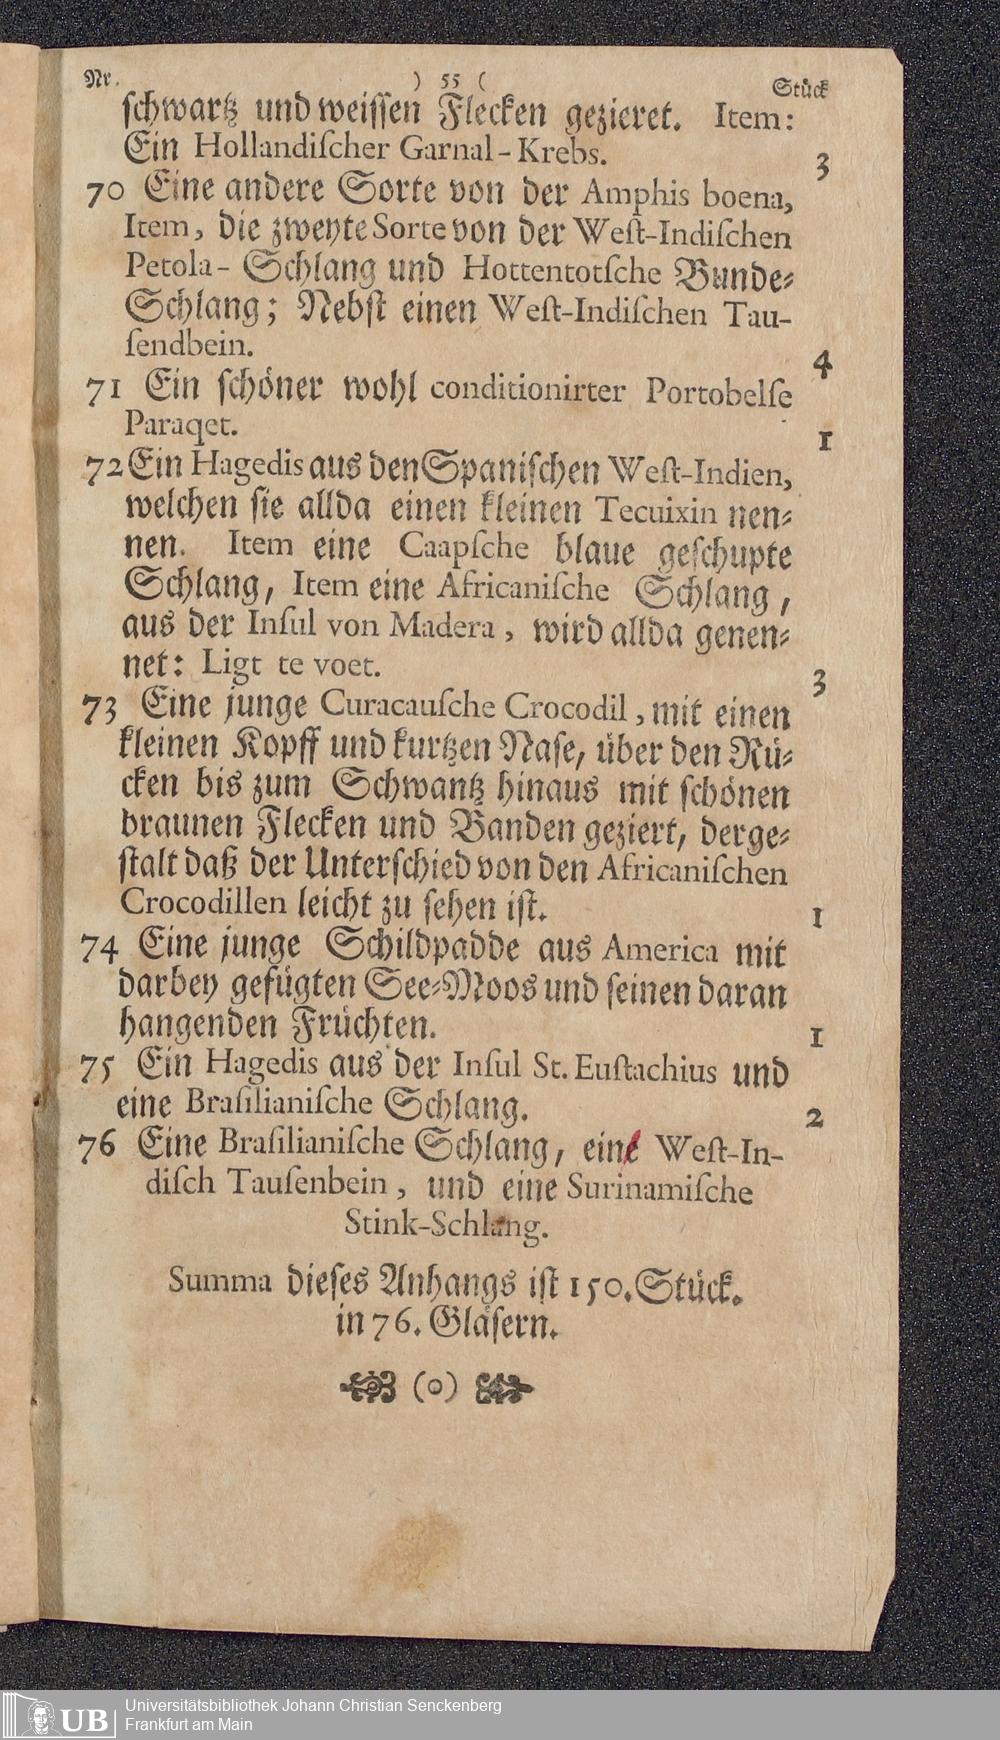 Nr. ) 55 ( Stück
ſchwartz und weiſſen Flecken gezieret. Item:
Ein Hollandiſcher Garnal-Krebs. 3
70 Eine andere Sorte von der Amphis boena,
Item, die zweyte Sorte von der Weſt-Indiſchen
Petola- Schlang und Hottentotſche Bunde-
Schlang; Nebſt einen Weſt-Indiſchen Tau-
ſendbein. 4
71 Ein ſchöner wohl conditionirter Portobelſe
Paraqet. 1
72 Ein Hagedis aus den Spaniſchen Weſt-Indien,
welchen ſie allda einen kleinen Tecuixin nen-
nen. Item eine Caapſche blaue geſchupte
Schlang, Item eine Africaniſche Schlang,
aus der Inſul von Madera, wird allda genen-
net: Ligt te voet. 3
73 Eine junge Curacauſche Crocodil, mit einen
kleinen Kopff und kurtzen Naſe, über den Rü-
cken bis zum Schwantz hinaus mit ſchönen
braunen Flecken und Banden geziert, derge-
ſtalt daß der Unterſchied von den Africaniſchen
Crocodillen leicht zu ſehen iſt. 1
74 Eine junge Schildpadde aus America mit
darbey gefügten See-Moos und ſeinen daran
hangenden Früchten. 1
75 Ein Hagedis aus der Inſul St. Euſtachius und
eine Braſilianiſche Schlang. 2
76 Eine Braſilianiſche Schlang, eine Weſt-In-
diſch Tauſenbein, und eine Surinamiſche
Stink-Schlang.
Summa dieſes Anhangs iſt 150. Stück.
in 76. Gläſern.
(o)
UB Universitätsbibliothek Johann Christian Senckenberg
Frankfurt am Main